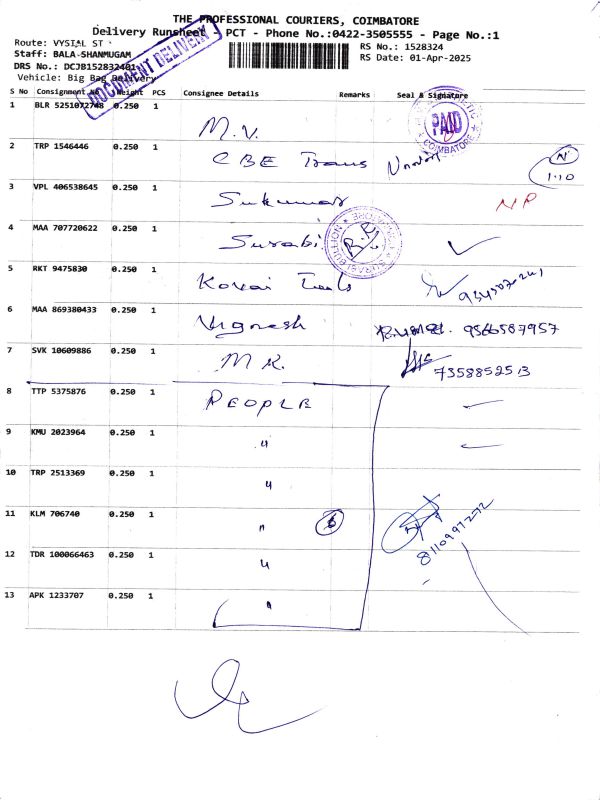 THE PROFESSIONAL COURIERS, COIMBATORE
Delivery Runsheet - PCT - Phone No.:0422-3505555 - Page No.:1
Route: VYSIAL ST
RS No.: 1528324
Staff: BALA-SHANMUGAM
RS Date: 01-Apr-2025
DRS No.: DCJB152832401
Vehicle: Big Bag Delivery
DOCUMENT DELIVERY
S No Consignment No Weight PCS Consignee Details Remarks Seal & Signature
1 BLR 5251072748 0.250 1 M.V.
PAID
COIMBATORE
2 TRP 1546446 0.250 1 CBE Trans
N
1.10
3 VPL 406538645 0.250 1 Sukumar NP
4 MAA 707720622 0.250 1 Surabi
SURABI BULLION
5 RKT 9475830 0.250 1 Kovai Tools
6 MAA 869380433 0.250 1 Vignesh 9566587957
7 SVK 10609886 0.250 1 M K. 7358852513
8 TTP 5375876 0.250 1 PEOPLE
9 KMU 2023964 0.250 1 "
10 TRP 2513369 0.250 1 "
11 KLM 706740 0.250 1 " 6
8110997272
12 TDR 100066463 0.250 1 "
13 APK 1233707 0.250 1 "